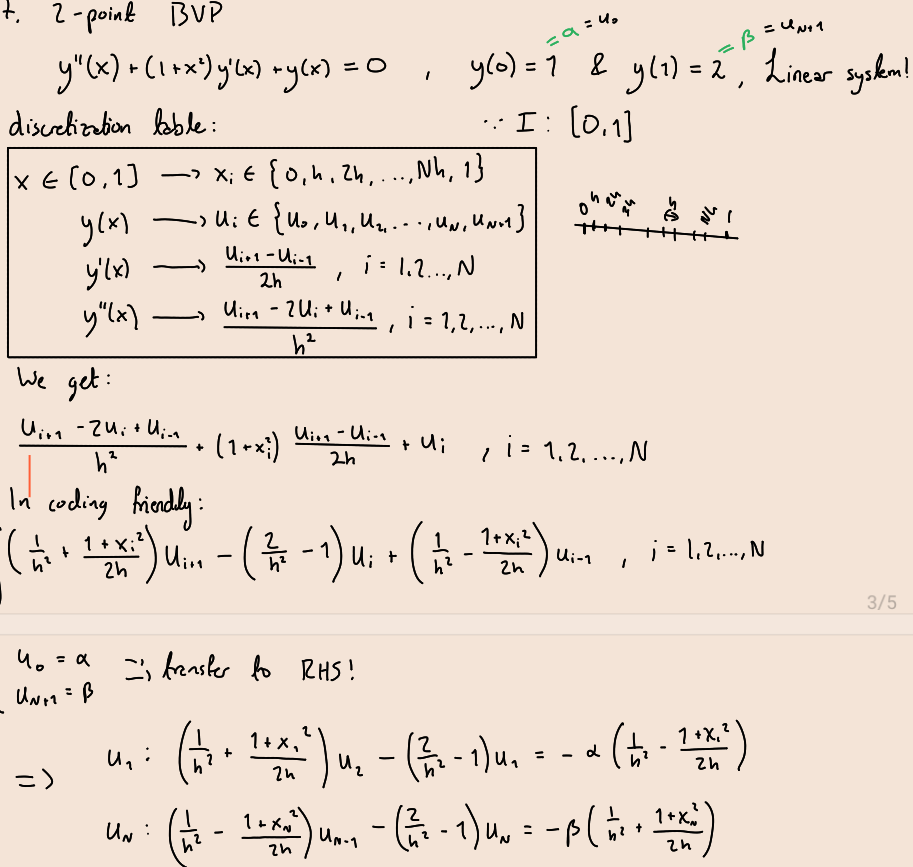 7. 2-point BVP
= α = u₀
= β = u_{N+1}
y''(x) + (1+x²) y'(x) + y(x) = 0 , y(0) = 1 & y(1) = 2 , Linear system!
discretization table: ∵ I : [0,1]
x ∈ [0,1] → x_i ∈ {0, h, 2h, ..., Nh, 1}
y(x) → u_i ∈ {u₀, u₁, u₂, ..., u_N, u_{N+1}}
y'(x) → (u_{i+1} - u_{i-1}) / 2h , i = 1,2,...,N
y''(x) → (u_{i+1} - 2u_i + u_{i-1}) / h² , i = 1,2,...,N
We get:
(u_{i+1} - 2u_i + u_{i-1}) / h² + (1+x_i²) (u_{i+1} - u_{i-1}) / 2h + u_i , i = 1,2,...,N
In coding friendly:
(1/h² + (1+x_i²)/2h) u_{i+1} - (2/h² - 1) u_i + (1/h² - (1+x_i²)/2h) u_{i-1} , i = 1,2,...,N
3/5
u₀ = α
u_{N+1} = β
=> transfer to RHS!
=> u₁ : (1/h² + (1+x₁²)/2h) u₂ - (2/h² - 1) u₁ = - α (1/h² - (1+x₁²)/2h)
u_N : (1/h² - (1+x_N²)/2h) u_{N-1} - (2/h² - 1) u_N = - β (1/h² + (1+x_N²)/2h)